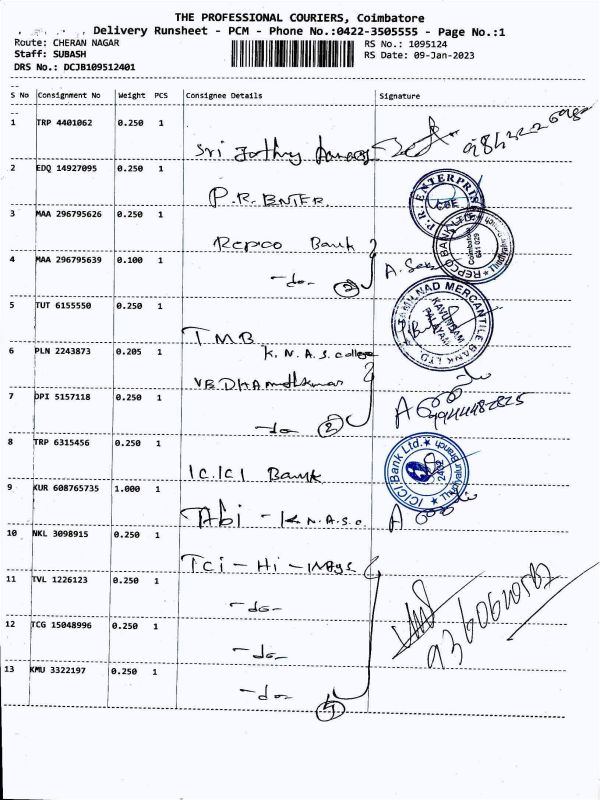 THE PROFESSIONAL COURIERS, Coimbatore
Delivery Runsheet - PCM - Phone No.:0422-3505555 - Page No.:1
Route: CHERAN NAGAR
RS No.: 1095124
Staff: SUBASH
RS Date: 09-Jan-2023
DRS No.: DCJB109512401
S No Consignment No Weight PCS Consignee Details Signature
1 TRP 4401062 0.250 1
Sri
2 EDQ 14927095 0.250 1
P.R. ENTER.
P.R. ENTERPRISE
CBE
3 MAA 296795626 0.250 1
Repco Bank
REPCO BANK LTD.
Coimbatore
641 029
Thudiyalur
4 MAA 296795639 0.100 1
-do- 2
5 TUT 6155550 0.250 1
TMB
K.N.A.S. college
TAMILNAD MERCANTILE BANK LTD
KAVUNDAM
PALAYAM
6 PLN 2243873 0.205 1
7 DPI 5157118 0.250 1
-do- 2
8 TRP 6315456 0.250 1
ICICI Bank
ICICI Bank Ltd.
2402
Thudiyalur Branch
9 KUR 608765735 1.000 1
Abi - K.N.A.S.C
10 NKL 3098915 0.250 1
TCI - Hi - Ways
11 TVL 1226123 0.250 1
-do-
12 TCG 15048996 0.250 1
-do-
13 KMU 3322197 0.250 1
-do-